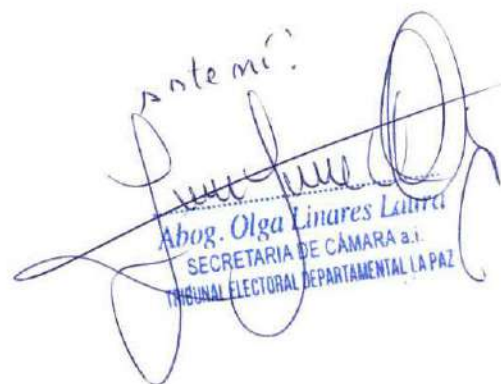 ante mí:
Abog. Olga Linares Laura
SECRETARIA DE CÁMARA a.i.
TRIBUNAL ELECTORAL DEPARTAMENTAL LA PAZ